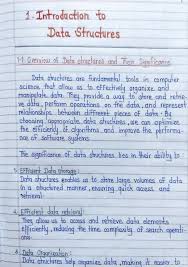 1. Introduction to
Data Structures
1.1 Overview of Data structures and Their Significance
Data structures are fundamental tools in computer
science that allow us to effectively organize and
manipulate data. They provide a way to store and retrie-
ve data, perform operations on the data, and represent
relationships between different pieces of data. By
choosing appropriate data structures, we can optimize
the efficiency of algorithms and improve the performa-
nce of software systems.
The significance of data structures lies in their ability to
1. Efficient Data Storage:
Data structures enable us to store large volumes of data
in a structured manner, ensuring quick access and
retrieval
2. Efficient data retrieval:
They allow us to access and retrieve data elements
efficiently, reducing the time complexity of search operati-
ons.
3. Data Organization:
Data structures help organize data, making it easier to